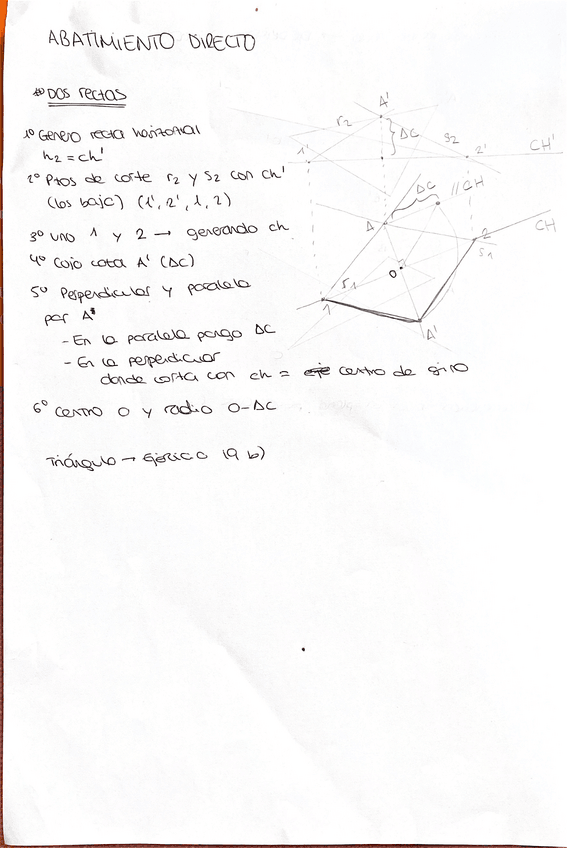 ABATIMIENTO DIRECTO
DOS rectas
1º Genero recta horizontal
h2 = ch'
2º Ptos de corte r2 y s2 con ch'
(los bajo) (1', 2', 1, 2)
3º uno 1 y 2 → generando ch
4º Cojo cota A' (ΔC)
5º Perpendicular y paralela
por A
- En la paralela pongo ΔC
- En la perpendicular
donde corta con ch = eje centro de giro
6º centro O y radio O-ΔC
Triángulo → Ejercicio 19 b)
A'
r2
ΔC
s2
1'
2'
CH'
ΔC
//CH
A
2
CH
s1
O
s1
1
A'